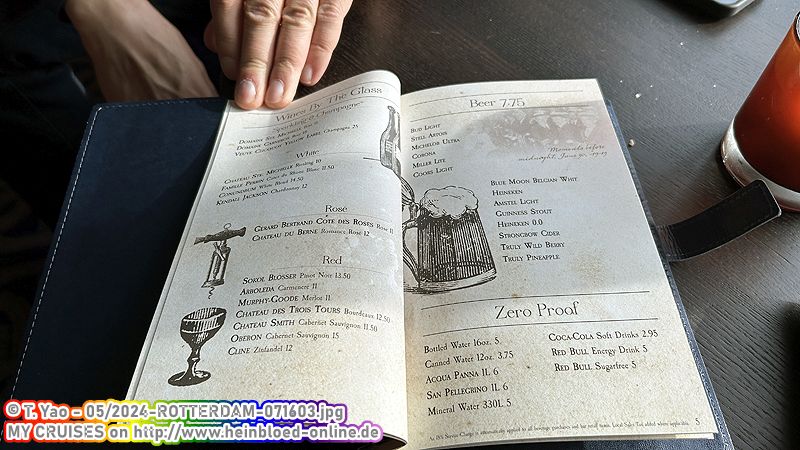 Wines By The Glass
Sparkling & Champagne
DOMAINE STE. MICHELLE Brut
DOMAINE CARNEROS Brut
VEUVE CLICQUOT YELLOW LABEL, Champagne 25
White
CHATEAU STE. MICHELLE Riesling 10
FAMILLE PERRIN Cotes du Rhone Blanc 11.50
CONUNDRUM White Blend 14.50
KENDALL JACKSON Chardonnay 12
Rosé
GÉRARD BERTRAND CÔTE DES ROSES Rosé 11
CHATEAU DU BERNE Romance Rosé 12
Red
SOKOL BLOSSER Pinot Noir 13.50
ARBOLEDA Carmenere 11
MURPHY-GOODE Merlot 11
CHATEAU DES TROIS TOURS Bourdeaux 12.50
CHATEAU SMITH Cabernet Sauvignon 11.50
OBERON Cabernet Sauvignon 15
CLINE Zinfandel 12
Beer 7.75
BUD LIGHT
STELL ARTOIS
MICHELOB ULTRA
CORONA
MILLER LITE
COORS LIGHT
Moments before
midnight, June 30, 1919
BLUE MOON BELGIAN WHIT
HEINEKEN
AMSTEL LIGHT
GUINNESS STOUT
HEINEKEN 0.0
STRONGBOW CIDER
TRULY WILD BERRY
TRULY PINEAPPLE
Zero Proof
Bottled Water 16oz. 5
Canned Water 12oz. 3.75
ACQUA PANNA 1L 6
SAN PELLEGRINO 1L 6
Mineral Water 330L 5
COCA-COLA Soft Drinks 2.95
RED BULL Energy Drink 5
RED BULL Sugarfree 5
An 18% Service Charge is automatically applied to all beverage purchases and bar retail items. Local Sales Tax added where applicable.
5
© T. Yao - 05/2024-ROTTERDAM-071603.jpg
MY CRUISES on http://www.heinbloed-online.de